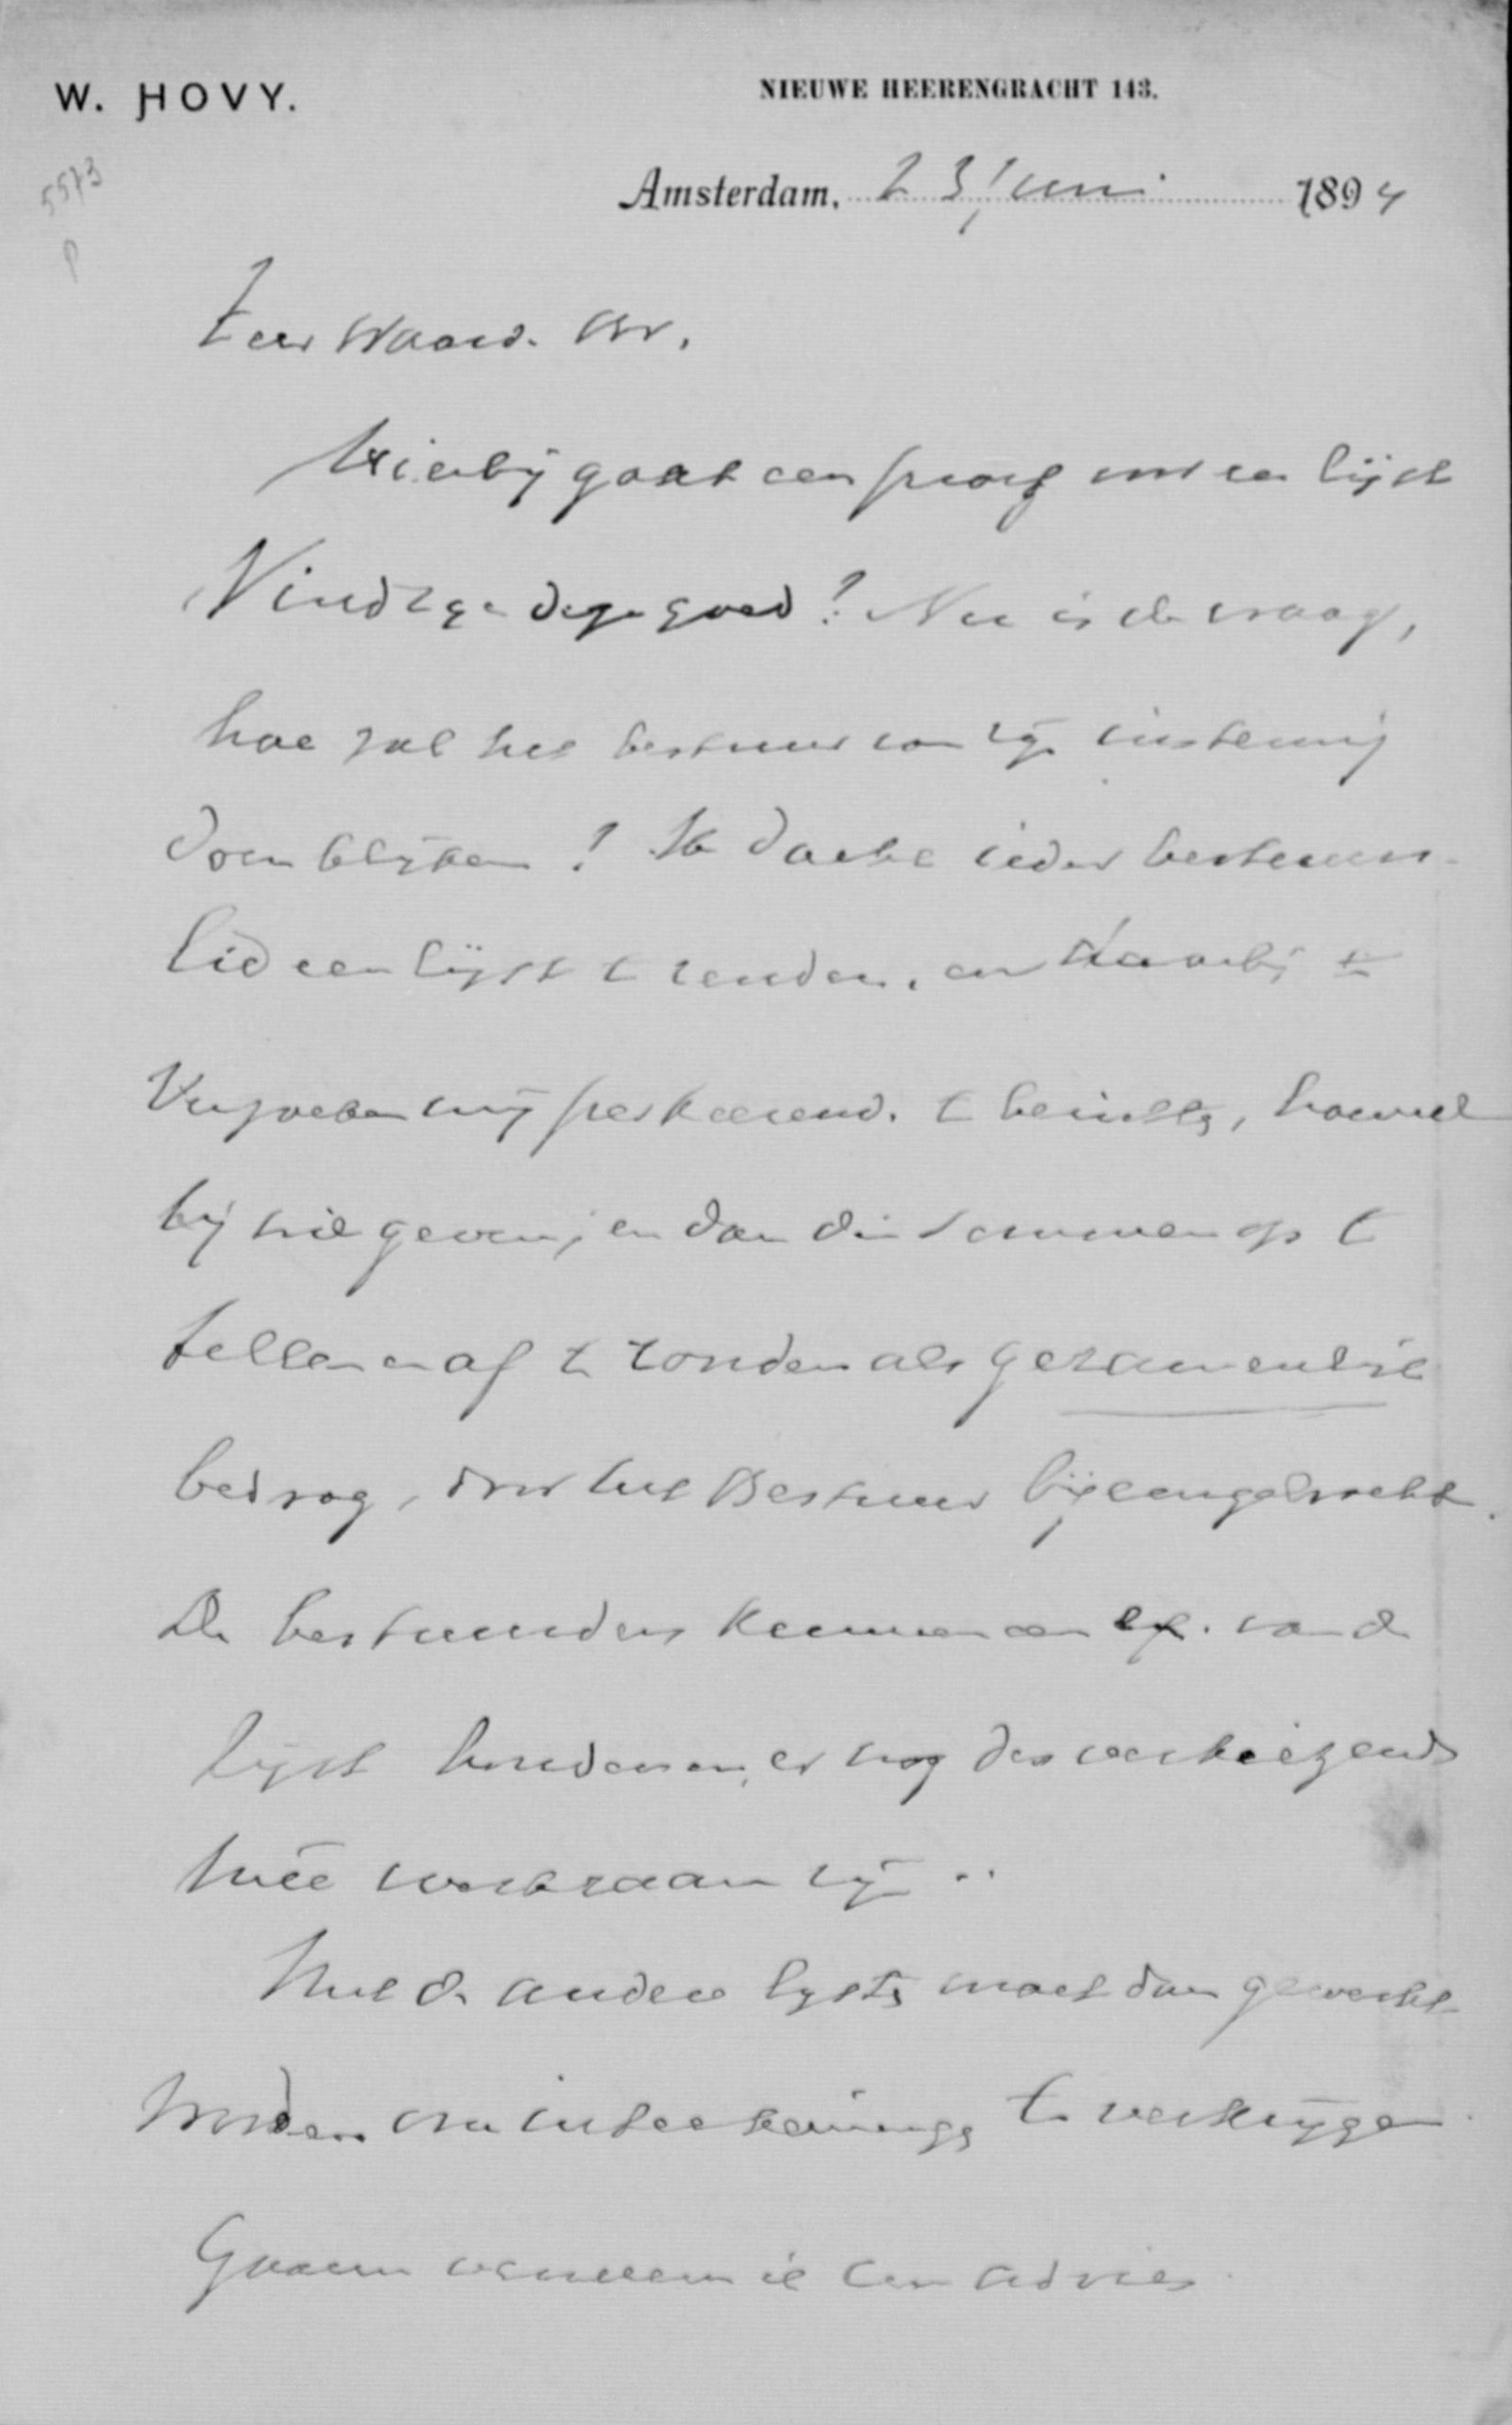 W. HOVY.
NIEUWE HEERENGRACHT 143.
Amsterdam, 23 Juni 1894
5573
P
Zeer Waard. Br,
Hierbij gaat een proef van een lijst
Vindt ge deze goed? Nu is de vraag,
hoe zal het bestuur van zijn instemming
doen blijken? Ik dacht ieder bestuurs-
lid een lijst te zenden, en daarbij te
Verzoeken mij per keerend. te berichten, hoeveel
hij wil geven; en dan die sommen op t
tellen en af te ronden als gezamenlijk
bedrag, door het Bestuur bijeengebracht.
De bestuurders kunnen een ex. van de
lijst houden en er nog des verkiezend
mêe werkzaam zijn ..
Met de andere lijsten moet dan gewerkt
worden om inteekeningen te verkrijgen
Gaarne verneem ik uw advies